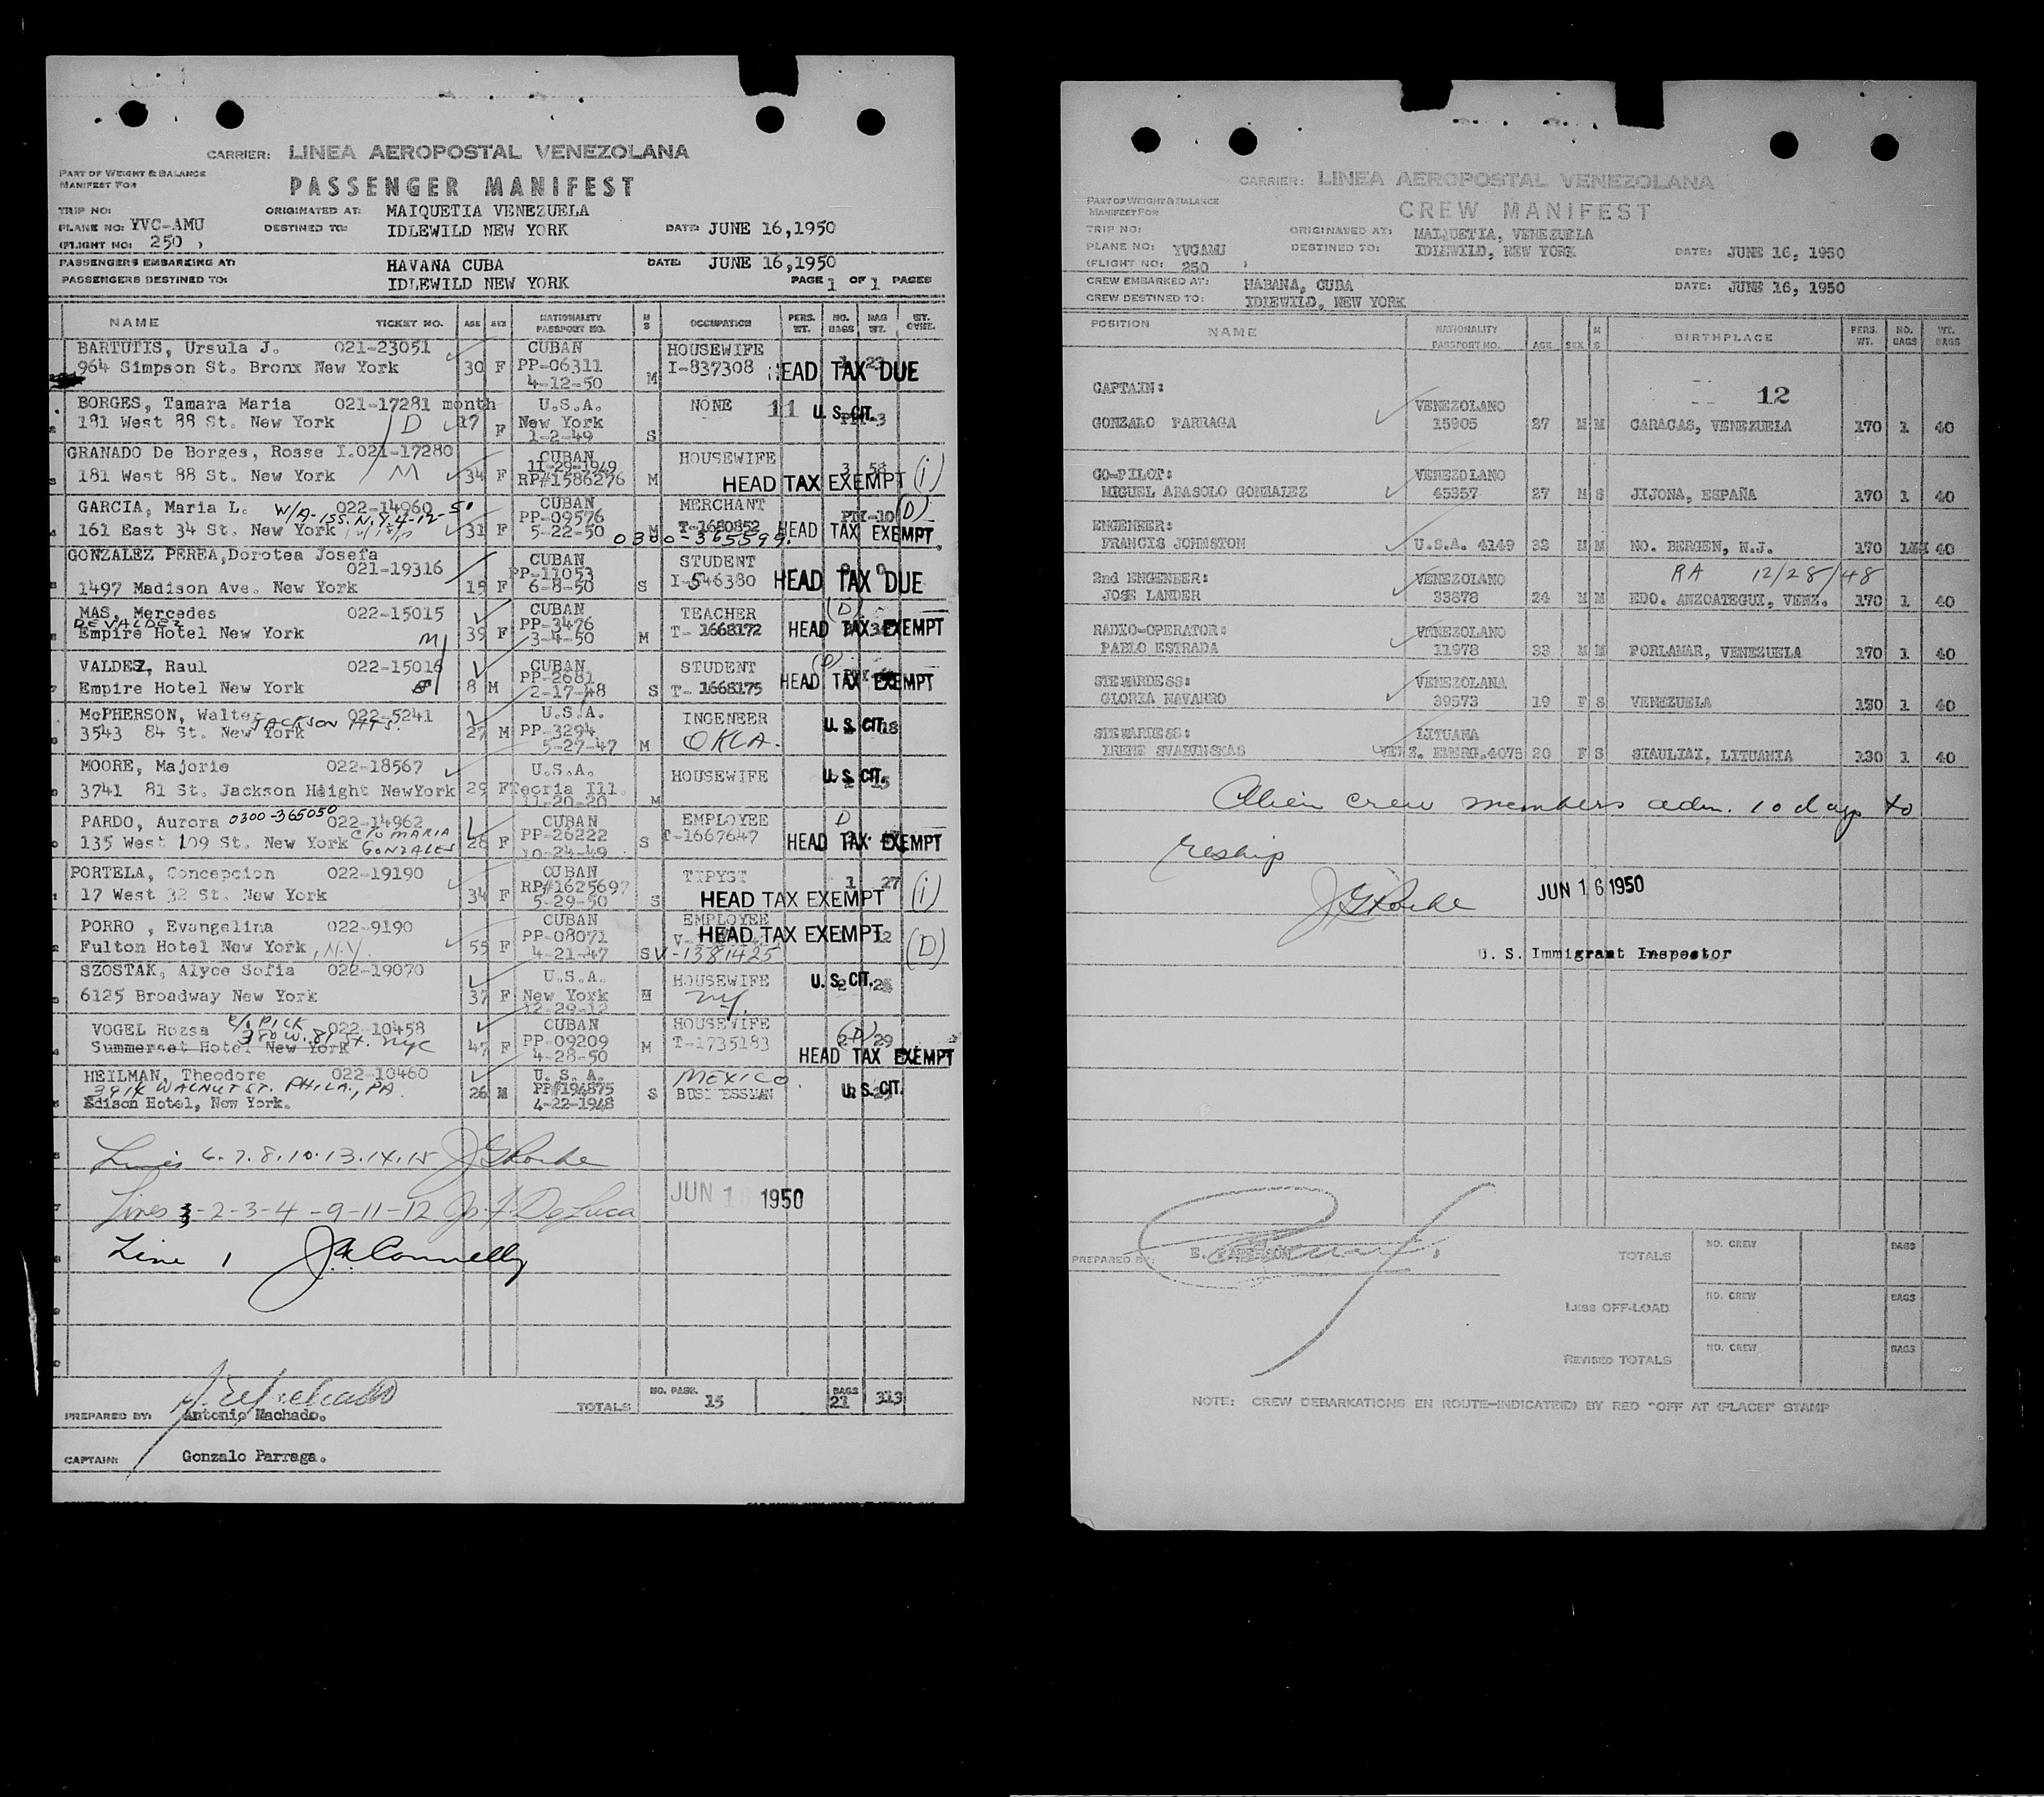 CARRIER: LINEA AEROPOSTAL VENEZOLANA
PART OF WEIGHT & BALANCE
MANIFEST FOR
PASSENGER MANIFEST
TRIP NO: ORIGINATED AT: MAIQUETIA VENEZUELA
PLANE NO: YVC-AMU DESTINED TO: IDLEWILD NEW YORK DATE: JUNE 16,1950
(FLIGHT NO: 250 )
PASSENGERS EMBARKING AT: HAVANA CUBA DATE: JUNE 16,1950
PASSENGERS DESTINED TO: IDLEWILD NEW YORK PAGE 1 OF 1 PAGES
NAME TICKET NO. AGE SEX NATIONALITY PASSPORT NO. M S OCCUPATION PERS. WT. NO. BAGS BAG WT. WT. OVWE.
BARTUTIS, Ursula J. 021-23051 CUBAN HOUSEWIFE
964 Simpson St. Bronx New York 30 F PP-06311 I-837308 HEAD TAX DUE
4-12-50 M
BORGES, Tamara Maria 021-17281 month U.S.A. NONE 11 U. S. CIT.
181 West 88 St. New York D 17 F New York
1-2-49 S
GRANADO De Borges, Rosse I.021-17280 CUBAN HOUSEWIFE 3 58
11-29-1949
181 West 88 St. New York M 34 F RP#1586276 M HEAD TAX EXEMPT (i)
GARCIA, Maria L. 022-14960 CUBAN MERCHANT
W/A-iss. N.Y. 4-12-50 PP-09576 T-1680852 (D)
161 East 34 St. New York 31 F 5-22-50 M 0300-365599. HEAD TAX EXEMPT
GONZALEZ PEREA,Dorotea Josefa CUBAN STUDENT
021-19316 PP-11053 I-546380 HEAD TAX DUE
1497 Madison Ave. New York 15 F 6-8-50 S
MAS, Mercedes 022-15015 CUBAN TEACHER (D)
DE VALDEZ PP-3476 T- 1668172 HEAD TAX EXEMPT
Empire Hotel New York M 39 F 3-4-50 M
VALDEZ, Raul 022-15016 CUBAN STUDENT (D)
PP-2681
Empire Hotel New York 8 M 2-17-48 S T- 1668175 HEAD TAX EXEMPT
McPHERSON, Walter 022-5241 U.S.A. INGENEER U. S. CIT.
JACKSON HTS.
3543 84 St. New York 27 M PP-3294 OKLA.
5-27-47 M
MOORE, Majorie 022-18567 U.S.A. HOUSEWIFE U. S. CIT.
3741 81 St. Jackson Height NewYork 29 F Peoria Ill.
11-20-20 M
PARDO, Aurora 0300-365050 022-14962 CUBAN EMPLOYEE D
C/O MARIA GONZALES PP-26222 T-1667647
135 West 109 St. New York 28 F 10-24-49 S HEAD TAX EXEMPT
PORTELA, Concepcion 022-19190 CUBAN TYPYST 1 27
RP#1625697
17 West 32 St. New York 34 F 5-29-50 S HEAD TAX EXEMPT (i)
PORRO , Evangelina 022-9190 CUBAN EMPLOYEE
PP-08071 HEAD TAX EXEMPT 12
Fulton Hotel New York, N.Y. 55 F 4-21-47 S V-1381425 (D)
SZOSTAK, Alyce Sofia 022-19070 U.S.A. HOUSEWIFE U. S. CIT.
6125 Broadway New York 37 F New York M NY.
12-29-12
VOGEL Rozsa c/o PICK 022-10458 CUBAN HOUSEWIFE (D) 29
350 W. 87 ST. NYC
Summerset Hotel New York 47 F PP-09209 M T-1735183
4-28-50 HEAD TAX EXEMPT
HEILMAN, Theodore 022-10460 U. S. A. MEXICO
3914 WALNUT ST. PHILA., PA. 26 M PP#194875 S BUSINESSMAN U. S. CIT.
Edison Hotel, New York. 4-22-1948
Lines 6. 7. 8. 10. 13. 14. 15 J G Rorke
Lines -2-3-4 -9-11-12 DeLuca JUN 16 1950
Line 1 J. A. Connelly
NO. PASS. 15 BAGS 21 313
TOTALS
PREPARED BY: Antonio Machado.
CAPTAIN: Gonzalo Parraga.
CARRIER: LINEA AEROPOSTAL VENEZOLANA
PART OF WEIGHT & BALANCE
MANIFEST FOR
CREW MANIFEST
TRIP NO: ORIGINATED AT: MAIQUETIA, VENEZUELA
PLANE NO: YVCAMU DESTINED TO: IDLEWILD, NEW YORK DATE: JUNE 16, 1950
(FLIGHT NO: 250 )
CREW EMBARKED AT: HABANA, CUBA DATE: JUNE 16, 1950
CREW DESTINED TO: IDLEWILD, NEW YORK
POSITION NAME NATIONALITY PASSPORT NO. AGE SEX M S BIRTHPLACE PERS. WT. NO. BAGS WT. BAGS
CAPTAIN: 12
VENEZOLANO
GONZALO PARRAGA 15905 27 M M CARACAS, VENEZUELA 170 1 40
CO-PILOT: VENEZOLANO
MIGUEL ABASOLO GONZALEZ 45357 27 M S JIJONA, ESPAÑA 170 1 40
ENGENEER:
FRANCIS JOHNSTON U.S.A. 4149 33 M M NO. BERGEN, N.J. 170 40
RA 12/28/48
2nd ENGENEER: VENEZOLANO
JOSE LANDER 33878 24 M M EDO. ANZOATEGUI, VENZ. 170 1 40
RADIO-OPERATOR: VENEZOLANO
PABLO ESTRADA 11978 33 M M PORLAMAR, VENEZUELA 170 1 40
STEWARDESS: VENEZOLANA
GLORIA NAVARRO 39573 19 F S VENEZUELA 130 1 40
STEWARDESS: LITUANA
IRENE SVALUNSKAS VENZ. EMERG.4075 20 F S SIAULIAI, LITUANIA 130 1 40
Alien crew members adm. 10 days to
reship
J G Rorke JUN 16 1950
U. S. Immigrant Inspector
PREPARED BY: TOTALS NO. CREW BAGS
LESS OFF-LOAD NO. CREW BAGS
REVISED TOTALS NO. CREW BAGS
NOTE: CREW DEBARKATIONS EN ROUTE-INDICATED BY RED "OFF AT (PLACE)" STAMP